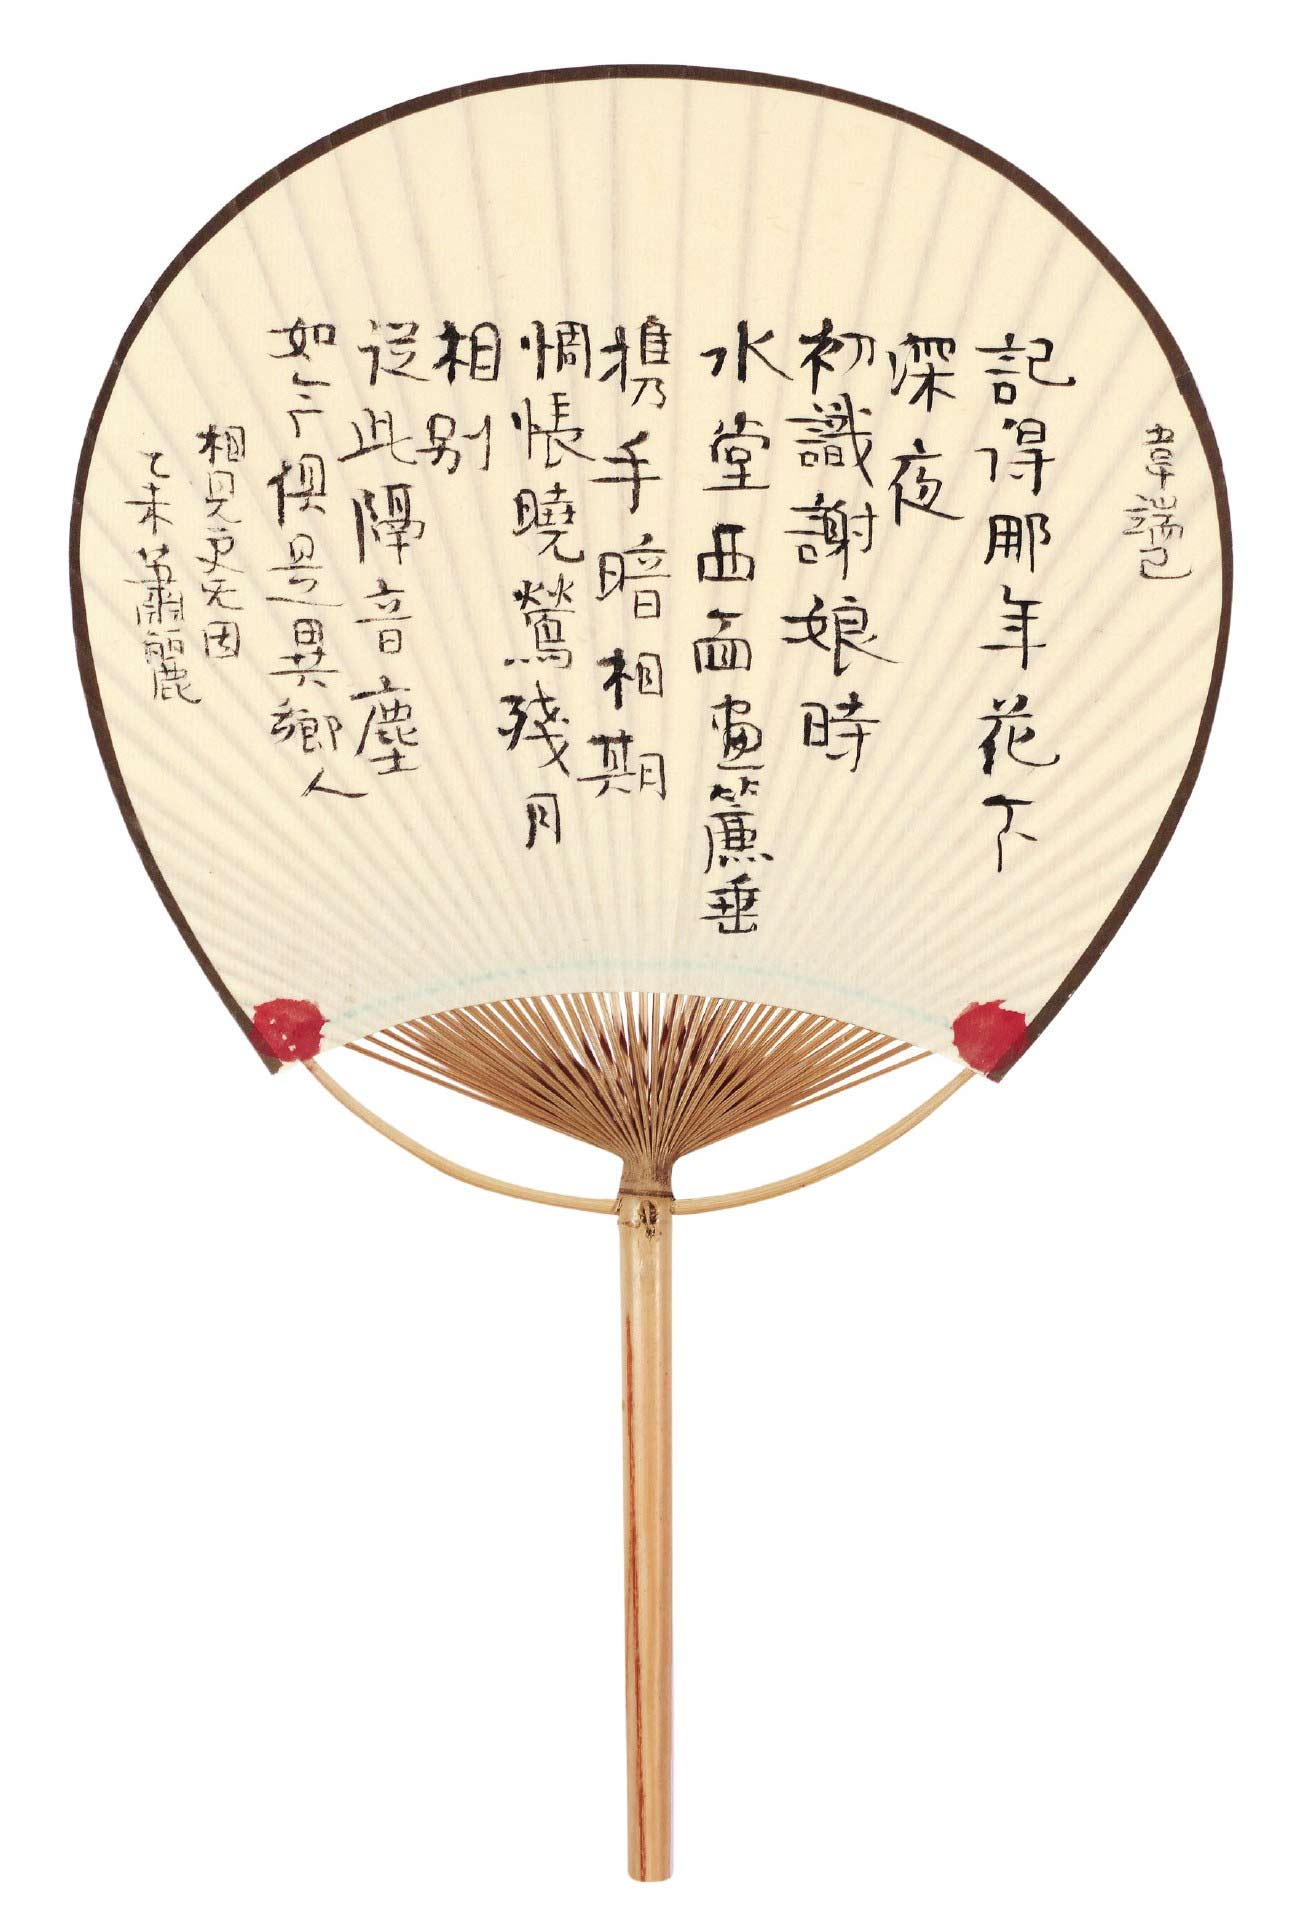 韋端己
記得那年花下
深夜
初識謝娘時
水堂西面畫簾垂
携手暗相期
惆悵曉鶯殘月
相別
從此隔音塵
如今俱是異鄉人
相見更无因
乙未蕭麗